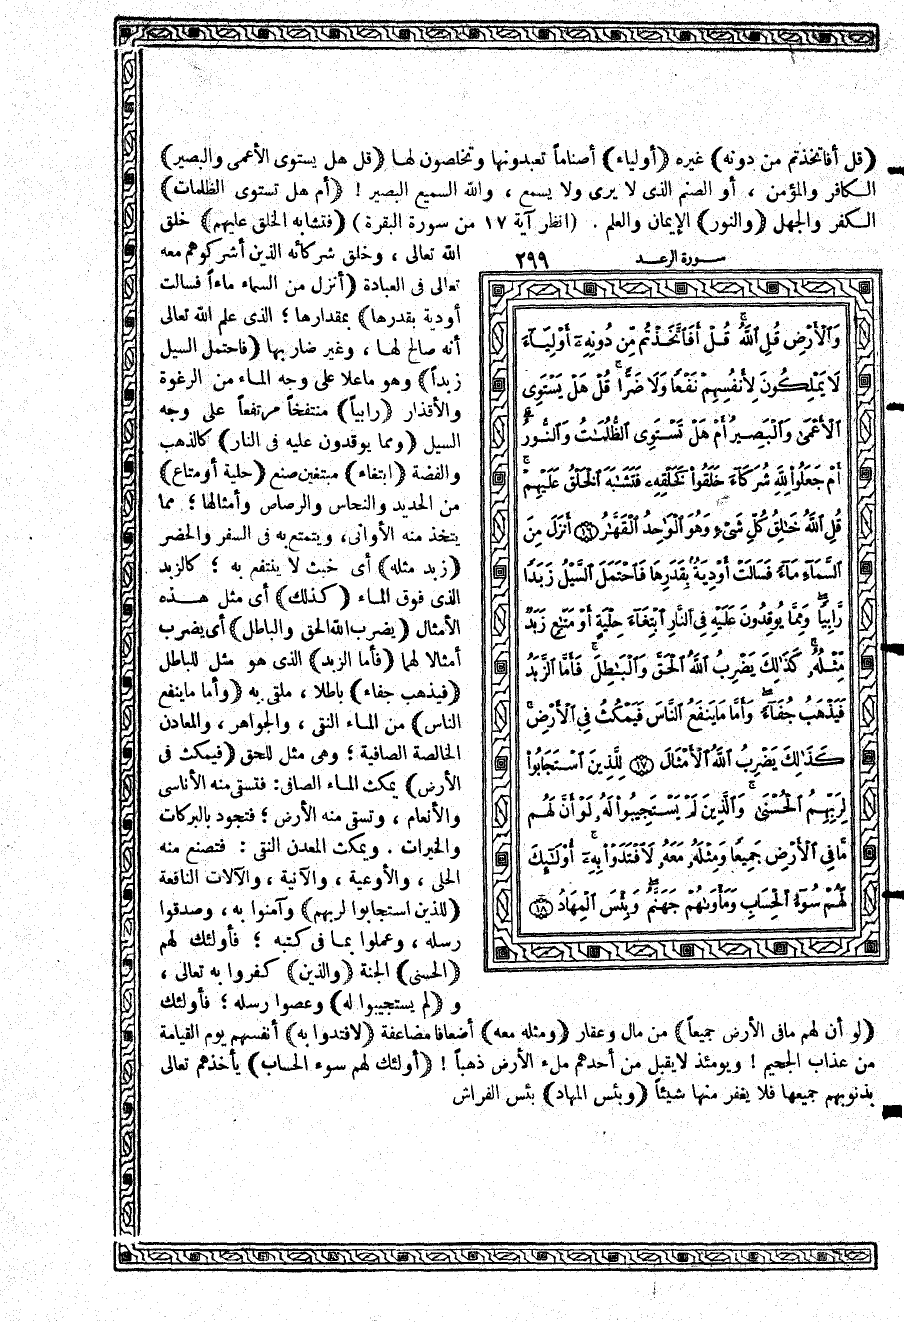 (قل أفاتخذتم من دونه) غيره (أولياء) أصناماً تعبدونها وتخلصون لهـا (قل هل يستوى الأعمى والبصير)
الـكافر والمؤمن ، أو الصنم الذى لا يرى ولا يسمع ، والله السميع البصير ! (أم هل تستوى الظلمات)
الـكفر والجهل (والنور) الإيمان والعلم . (انظر آية ١٧ من سورة البقرة) (فتشابه الخلق عليهم) خلق
الله تعالى ، وخلق شركائه الذين أشركوهم معه
تعالى فى العبادة (أنزل من السماء ماءاً فسالت
أودية بقدرها) بمقدارها ؛ الذى علم الله تعالى
أنه صالح لهـا ، وغير ضار بها (فاحتمل السيل
زبداً) وهو ماعلا على وجه المـاء من الرغوة
والأقذار (رابياً) منتفخاً مرتفعاً على وجه
السيل (ومما يوقدون عليه فى النار) كالذهب
والفضة (ابتغاء) مبتغين صنع (حلية أو متاع)
من الحديد والنحاس والرصاص وأمثالها ؛ مما
يتخذ منه الأوانى، ويتمتع به فى السفر والحضر
(زبد مثله) أى خبث لا ينتفع به ؛ كالزبد
الذى فوق المـاء (كذلك) أى مثل هـــذه
الأمثال (يضرب الله الحق والباطل) أى يضرب
أمثالا لهما (فأما الزبد) الذى هو مثل للباطل
(فيذهب جفاء) باطلا ، ملقى به (وأما ماينفع
الناس) من المـاء النقى ، والجواهر ، والمعادن
الخالصة الصافية ؛ وهى مثل للحق (فيمكث فى
الأرض) يمكث المـاء الصافى: فتسقى منه الأناسى
والأنعام ، وتسقى منه الأرض ؛ فتجود بالبركات
والخيرات . ويمكث المعدن النقى : فتصنع منه
الحلى ، والأوعية ، والآنية ، والآلات النافعة
(للذين استجابوا لربهم) وآمنوا به ، وصدقوا
رسله ، وعملوا بمـا فى كتبه ؛ فأولئك لهم
(الحسنى) الجنة (والذين) كفروا به تعالى ،
و (لم يستجيبوا له) وعصوا رسله ؛ فأولئك
سـورة الرعـد ٢٩٩
وَٱلۡأَرۡضِ قُلِ ٱللَّهُۚ قُلۡ أَفَٱتَّخَذۡتُم مِّن دُونِهِۦٓ أَوۡلِيَآءَ
لَا يَمۡلِكُونَ لِأَنفُسِهِمۡ نَفۡعٗا وَلَا ضَرّٗاۚ قُلۡ هَلۡ يَسۡتَوِي
ٱلۡأَعۡمَىٰ وَٱلۡبَصِيرُ أَمۡ هَلۡ تَسۡتَوِي ٱلظُّلُمَٰتُ وَٱلنُّورُۗ
أَمۡ جَعَلُواْ لِلَّهِ شُرَكَآءَ خَلَقُواْ كَخَلۡقِهِۦ فَتَشَٰبَهَ ٱلۡخَلۡقُ عَلَيۡهِمۡۚ
قُلِ ٱللَّهُ خَٰلِقُ كُلِّ شَيۡءٖ وَهُوَ ٱلۡوَٰحِدُ ٱلۡقَهَّٰرُ ١٦ أَنزَلَ مِنَ
ٱلسَّمَآءِ مَآءٗ فَسَالَتۡ أَوۡدِيَةُۢ بِقَدَرِهَا فَٱحۡتَمَلَ ٱلسَّيۡلُ زَبَدٗا
رَّابِيٗاۖ وَمِمَّا يُوقِدُونَ عَلَيۡهِ فِي ٱلنَّارِ ٱبۡتِغَآءَ حِلۡيَةٍ أَوۡ مَتَٰعٖ زَبَدٞ
مِّثۡلُهُۥۚ كَذَٰلِكَ يَضۡرِبُ ٱللَّهُ ٱلۡحَقَّ وَٱلۡبَٰطِلَۚ فَأَمَّا ٱلزَّبَدُ
فَيَذۡهَبُ جُفَآءٗۖ وَأَمَّا مَا يَنفَعُ ٱلنَّاسَ فَيَمۡكُثُ فِي ٱلۡأَرۡضِۚ
كَذَٰلِكَ يَضۡرِبُ ٱللَّهُ ٱلۡأَمۡثَالَ ١٧ لِلَّذِينَ ٱسۡتَجَابُواْ
لِرَبِّهِمُ ٱلۡحُسۡنَىٰۚ وَٱلَّذِينَ لَمۡ يَسۡتَجِيبُواْ لَهُۥ لَوۡ أَنَّ لَهُم
مَّا فِي ٱلۡأَرۡضِ جَمِيعٗا وَمِثۡلَهُۥ مَعَهُۥ لَٱفۡتَدَوۡاْ بِهِۦٓۚ أُوْلَٰٓئِكَ
لَهُمۡ سُوٓءُ ٱلۡحِسَابِ وَمَأۡوَىٰهُمۡ جَهَنَّمُۖ وَبِئۡسَ ٱلۡمِهَادُ ١٨
(لو أن لهم مافى الأرض جميعاً) من مال وعقار (ومثله معه) أضعافا مضاعفة (لافتدوا به) أنفسهم يوم القيامة
من عذاب الجحيم ! ويومئذ لايقبل من أحدهم ملء الأرض ذهباً ! (أولئك لهم سوء الحساب) يأخذهم تعالى
بذنوبهم جميعها فلا يغفر منها شيئاً (وبئس المهاد) بئس الفراش